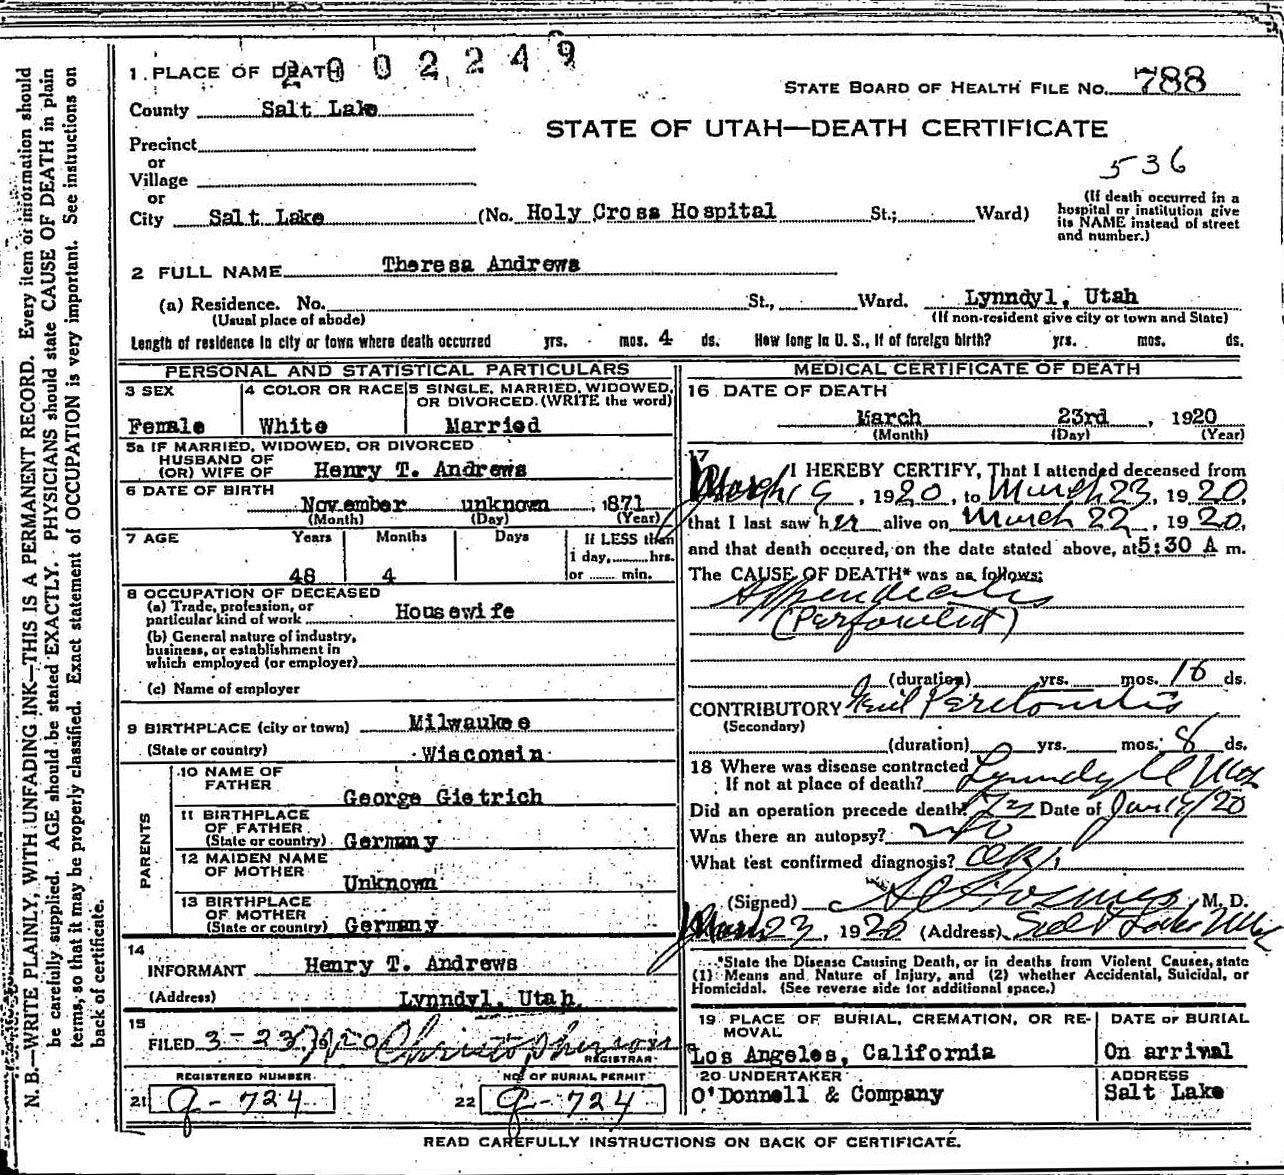 N. B.—WRITE PLAINLY, WITH UNFADING INK—THIS IS A PERMANENT RECORD. Every item of information should
be carefully supplied. AGE should be stated EXACTLY. PHYSICIANS should state CAUSE OF DEATH in plain
terms, so that it may be properly classified. Exact statement of OCCUPATION is very important. See instructions on
back of certificate.
2002249
1 PLACE OF DEATH
STATE BOARD OF HEALTH FILE NO. 788
County Salt Lake
STATE OF UTAH—DEATH CERTIFICATE
Precinct
or
Village
or
536
City Salt Lake (No. Holy Cross Hospital St.; Ward)
(If death occurred in a
hospital or institution give
its NAME instead of street
and number.)
2 FULL NAME Theresa Andrews
(a) Residence. No. St., Ward. Lynndyl, Utah
(Usual place of abode) (If non-resident give city or town and State)
Length of residence in city or town where death occurred yrs. mos. 4 ds. How long in U. S., if of foreign birth? yrs. mos. ds.
PERSONAL AND STATISTICAL PARTICULARS
3 SEX 4 COLOR OR RACE 5 SINGLE, MARRIED, WIDOWED,
OR DIVORCED. (WRITE the word)
Female White Married
5a IF MARRIED, WIDOWED, OR DIVORCED
HUSBAND OF
(OR) WIFE OF Henry T. Andrews
6 DATE OF BIRTH
November unknown, 1871
(Month) (Day) (Year)
7 AGE Years Months Days If LESS than
1 day, hrs.
48 4 or min.
8 OCCUPATION OF DECEASED
(a) Trade, profession, or
particular kind of work Housewife
(b) General nature of industry,
business, or establishment in
which employed (or employer)
(c) Name of employer
9 BIRTHPLACE (city or town) Milwaukee
(State or country) Wisconsin
PARENTS
10 NAME OF
FATHER George Gietrich
11 BIRTHPLACE
OF FATHER
(State or country) Germany
12 MAIDEN NAME
OF MOTHER Unknown
13 BIRTHPLACE
OF MOTHER
(State or country) Germany
14
INFORMANT Henry T. Andrews
(Address) Lynndyl, Utah
15
FILED 3-23, 1920 Christopherson
REGISTRAR
REGISTERED NUMBER NO. OF BURIAL PERMIT
21 9-724 22 9-724
MEDICAL CERTIFICATE OF DEATH
16 DATE OF DEATH
March 23rd, 1920
(Month) (Day) (Year)
17
I HEREBY CERTIFY, That I attended deceased from
March 19, 1920, to March 23, 1920,
that I last saw her alive on March 22, 1920,
and that death occured, on the date stated above, at 5:30 A m.
The CAUSE OF DEATH* was as follows:
Appendicitis
(Perforated)
(duration) yrs. mos. 16 ds.
CONTRIBUTORY Peritonitis
(Secondary)
(duration) yrs. mos. 8 ds.
18 Where was disease contracted
If not at place of death? Lynndyl Utah
Did an operation precede death? Date of 19/20
Was there an autopsy? no
What test confirmed diagnosis?
(Signed) M. D.
March 23, 1920 (Address) Salt Lake Utah
*State the Disease Causing Death, or in deaths from Violent Causes, state
(1) Means and Nature of Injury, and (2) whether Accidental, Suicidal, or
Homicidal. (See reverse side for additional space.)
19 PLACE OF BURIAL, CREMATION, OR RE-
MOVAL
DATE OF BURIAL
Los Angeles, California On arrival
20 UNDERTAKER ADDRESS
O'Donnell & Company Salt Lake
READ CAREFULLY INSTRUCTIONS ON BACK OF CERTIFICATE.